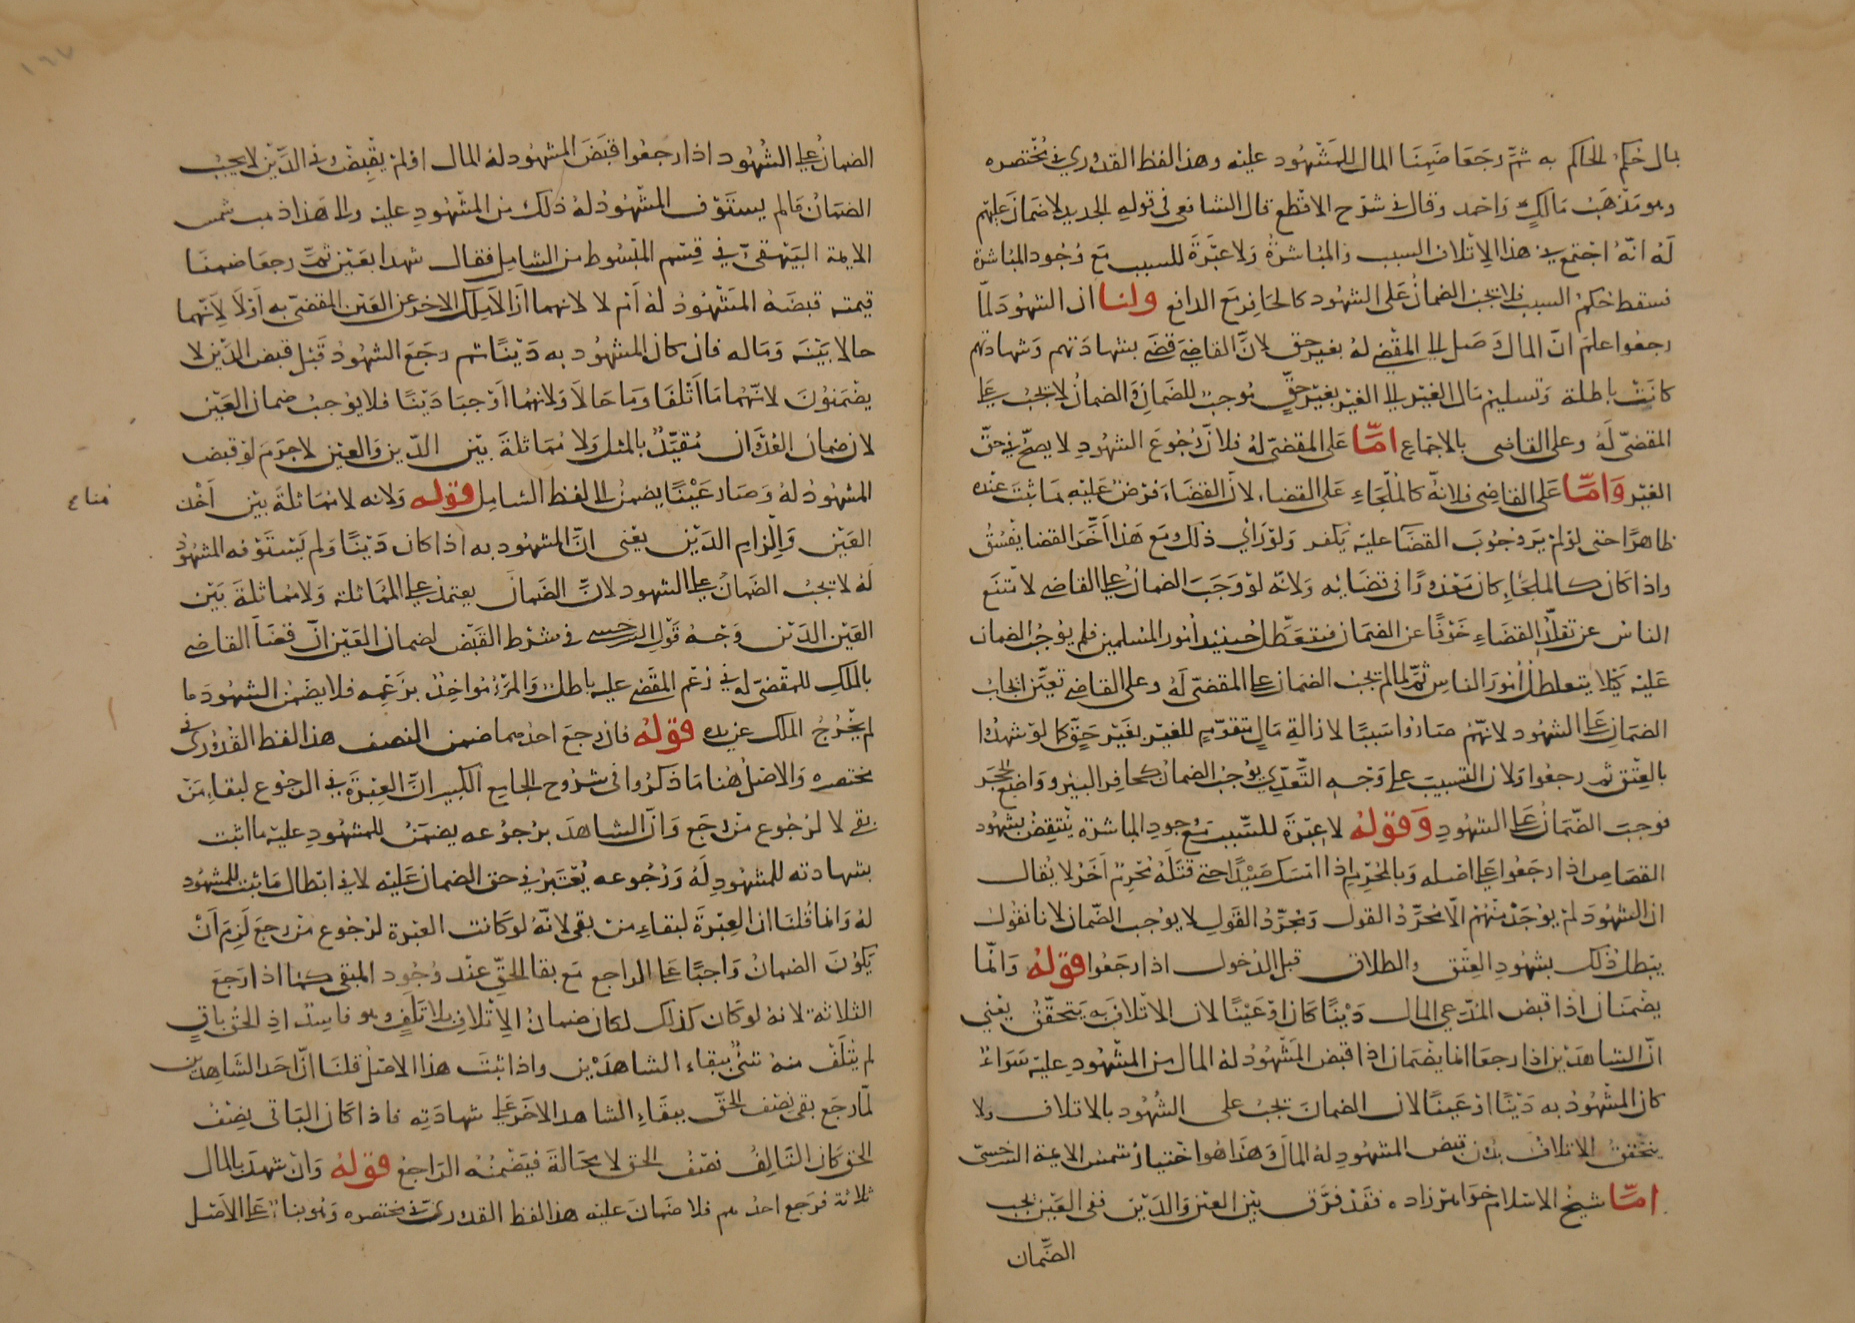 بمال فحكم الحاكم به ثمّ رجعَا ضَمِنَا المال للمَشْهُود عليه وهذا لفظ القدوري في مُختصره
وهو مَذهَبْ مَالكٍ وَاحمد وقال في شرح الاقطع قال الشافعي في قولهِ الجديد لا ضمانَ عليهم
لَهُ انّهُ اجتمع في هذا الاِتْلاف السبب والمُباشرةُ وَلا عِبْرَةَ للسبب مَع وُجُود المبَاشرة
فسقط حُكمُ السبب فلا يجب الضمانُ عَلى الشهُود كالحافِرِ مَع الدافع ولنا ان الشهُودَ لمّا
رجعوا علمَ انَّ المالَ وَصَل الى المقضي لهُ بغيرِ حق لانَّ القاضيَ قضَى بشهادَتهم وَشهادتهم
كانَتْ باطلة وَتسليم مَال الغَيْر الى الغير بغَيْر حَقٍّ مُوجبٌ للضمَانِ وَالضمانُ لا يجبُ على
المقضىّ لَهُ وعلى القاضى بالاجماعِ امّا عَلى المقضىّ لهُ فلانّ رُجُوعَ الشهُودِ لا يصحّ في حقّ
الغيْر وَامّا عَلى القاضِى فلانهُ كالمُلْجَاءِ عَلى القضا، لانّ القضَاءَ فَرْضٌ عَليْهِ بمَا ثبَتَ عنْده
ظاهرًا حتى لوْ لمْ يَرَ وجُوبَ القضَآ عليْه يَكفر وَلوْ رَأى ذلكَ مَع هَذا اَخَّرَ القضا يفْسُقُ
واذا كَانَ كالمُلجَاءِ كان مَعْذورًا في قضَايه وَلانّه لوْ وَجَبَ الضمانُ على القاضي لامْتنَع
الناسُ عن تقلّدِ القضَاءِ خَوْفًا عن الضمَان فتتعَطّلُ حينئذٍ امُور المسْلمين فلم يوُجب الضمان
عَليْه كَيْلا يتعطل اُمُورَ الناسِ ثمّ لمّا لم يجب الضمان على المقضىّ لَهُ وعلى القاضي تعيَّن ايجابُ
الضمَان على الشهُود لانّهُمْ صَارُوا سَببًا لازالةِ مَالٍ متَقوّمٍ للغيْرِ بغَيْر حَقٍّ كما لوْ شهدُا
بالعِتْق ثم رجعوا وَلان التّسبيبَ على وَجْهِ التّعَدِّي يوُجبُ الضمانَ كحافرِ البيرِ وواضع الحجَر
فوجبَ الضّمَانُ عَلى الشهُودِ وَقوْلهُ لا عِبْرَةَ للسَّببِ مَع وجودِ المباشرَة يَنْتقِضُ بشهُود
القصَاصِ اذا رجَعُوا على اصْله وَبالمُحْرِمِ اذا امْسَك صَيْدًا حتى قتَلهُ مُحْرِمٌ اَخَرُ لا يُقال
ان الشهُودَ لمْ يوُجَدْ مِنْهُم الّا مُجرَّدُ القول وَمُجرَّدُ القَولِ لا يوُجب الضّمانَ لانا نقُولُ
يبْطلُ ذلكَ بشهُودِ العِتْق والطلاق قبل الدخول اذا رجَعُوا قوْلهُ وَانّما
يضْمَنان اذا قبض المُدّعي المال دَيْنًا كَانَ اوْ عَيْنًا لان الاتْلافَ بهِ يَتحقّقُ يعْني
انّ الشاهدَيْن اذا رجعَا انما يضْمَنان اذا قبض المَشْهُودُ لهُ المال من المشْهُودِ عليْه سَوَاءٌ
كان المشْهُودُ به دَيْنًا اوْ عَيْنًا لان الضمانَ يجبُ على الشُهُود بالاتلاف ولا
يتحققُ الاتلافُ بدُون قبض المشهُودِ لهُ المالَ وَهَذا هُوَ اخْتيارُ شمس الايمة السَرخسىّ
امّا شيخُ الاسْلام خوَاهر زاده فقَدْ فرَّق بيْن العيْن وَالدّيْن ففى العَيْن يجب
الضّمان
الضمانُ على الشُهُود اذا رجعُوا قبَضَ المشهُود لهُ المال اوْ لمْ يقبِضْ وفي الدَّيْن لا يجبُ
الضمَانُ مَا لم يستَوْف المشْهُودُ لهُ ذلكَ من المشْهُودِ عليْه والى هَذا ذهب شمس
الايمة البَيْهقىّ في قِسْم المبْسُوط من الشامِل فقال شهدا بعَيْنٍ ثمَّ رجعَا ضمنَا
قيمتَه قبضَهُ المَشْهُودُ لهُ اَم لا لانهما ازَالا مِلكَ الاخر عن العَيْن المقضىّ به اَوْلَا لاَنّهما
حالا بَيْنَهُ وَمَاله فان كان المشهُود به دَيْنًا ثم رجَعَ الشهُودُ قبْل قبض الدّيْن لا
يضْمَنُونَ لانّهُمَا مَا اَتْلفَا وَمَا حَالا وَلانهُمَا اوْجبَا دَيْنًا فلا يوُجبُ ضمان العَيْن
لانّ ضمان العُدْوَان مُقيَّدٌ بالمثل وَلا مُمَاثلةَ بيْن الدّيْن وَالعيْن لا جَرَمَ لوْ قبض
المشهُودُ لهُ وَصَار عَيْنًا يضمنُ الى لفظ الشامِل قوْله وَلانه لا مُمَاثلةَ بيْن اَخْذ
العَيْن وَاِلْزامِ الدَيْن يعْني انّ المشهُود به اذا كان دَيْنًا وَلم يَسْتَوْفه المشهُودُ
لَهُ لا يجبُ الضمَانُ على الشهود لانّ الضَمانَ يعتمدُ على المُمَاثلة وَلا مُماثلةَ بَيْن
العَيْن الدَيْن وَجْهُ قَوْل السَرخسي في شرْط القَبْض لضمان العَيْن انّ قضَآ القاضي
بالملكِ للمقْضىّ له في زَعْم المقْضى عليْه باطلٌ وَالمرْءُ مُواخذٌ بزَعْمِه فلا يضْمنُ الشهُودُ ما
لم يخْرُجُ الملك عن يده قوْلهُ فان رجعَ احدُهما ضمن النصف هذا لفظ القُدوْري في
مختصره وَالاصْلُ هُنا مَا ذكرُوا في شرُوح الجامِع الكبير انّ العِبْرَة في الرجُوع لبقاءِ مَنْ
بقى لا لرُجُوع منْ رجَع وَانّ الشاهدَ برُجوُعه يضمَنُ للمشهُودِ عليْه ما اثبت
بشهادته للمشهُودِ لَهُ وَرُجُوعه يُعْتَبرُ في حق الضمان عَليْه لا في ابْطال مَا ثبت للمشهُود
لهُ وَانما قُلنَا ان العِبْرَةَ لبقاءِ من بقى لانّهُ لوْ كَانت العبْرة لرُجُوع منْ رجعَ لَزِمَ اَنْ
يَكُونَ الضمانُ وَاجبًا عَلى الراجع مَع بقا الحَقّ عنْد وُجُودِ المبقى كما اذا رَجَعَ
الثلاثة لانهُ لوْ كَان كذلكَ لكان ضمانُ الاِتْلافِ بلا تَلَفٍ وهو فاسِدٌ اذِ الحقّ باقٍ
لم يتْلَفْ منهُ شئٌ ببقاءِ الشاهدَيْن واذا ثبتَ هذا الاصْلُ قلنَا انّ اَحَد الشَاهدَيْن
لمّا رجَعَ بقى نصْف الحَقّ ببقَاءِ الشاهد الاخر على شهادَتِه فاذا كَان البَاقى نصْفَ
الحَقّ كان التَالِفُ نصْفَ الحق لا محَالةَ فيَضْمنُهُ الرَاجعُ قوْلهُ وَانْ شهدَ بالمال
ثلاثة فرَجع احدُهم فلا ضَمَانَ عليْه هذا لفظ القدوريّ في مختصره وَهُوَ بناءٌ على الاَصْل